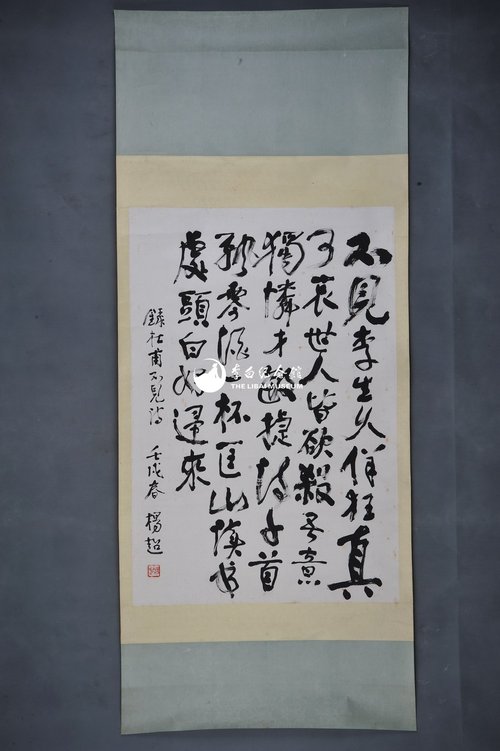 不見李生久佯狂真
可哀世人皆欲殺吾意
獨憐才敏捷詩千首
飄零酒一杯匡山讀書
處頭白好歸來
錄杜甫不見詩 壬戌春 楊超
李白纪念館
THE LIBAI MUSEUM